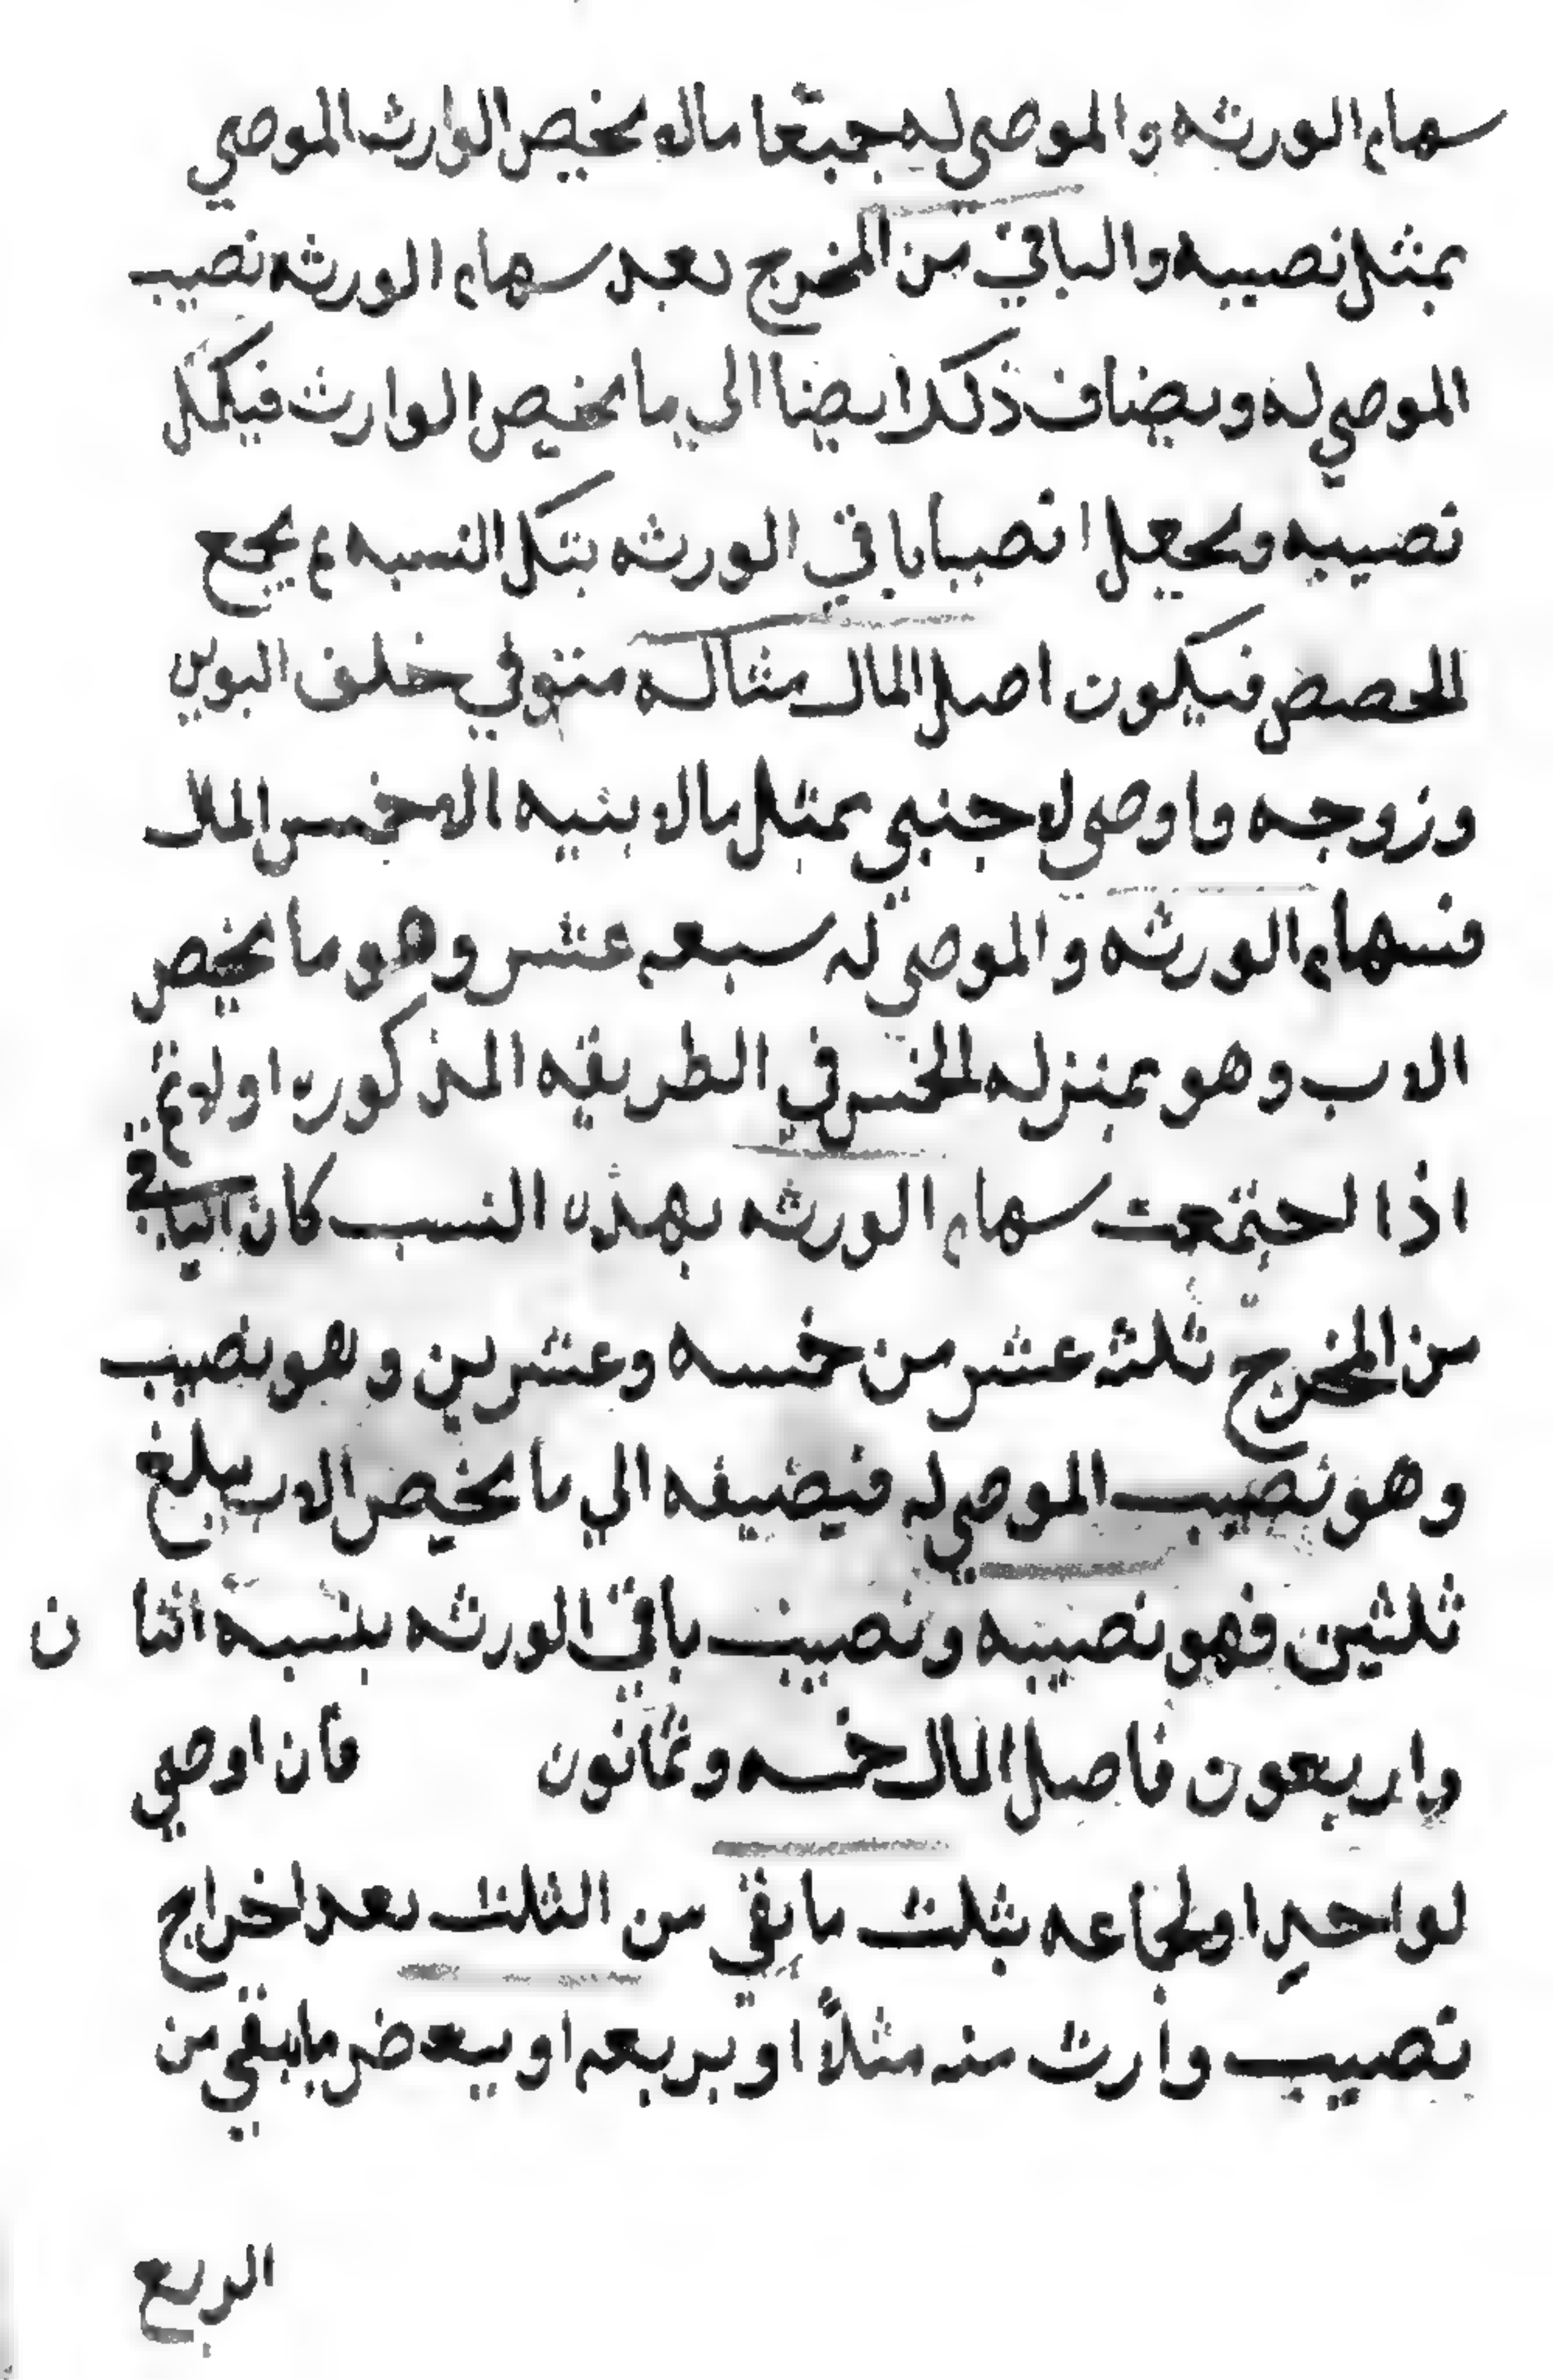 سهام الورثه والموصى له جميعا مالا يخص الوارث الموصي
بمثل نصيبه والباقي من المخرج بعد سهام الورثه نصيب
الموصي له ويضاف ذلك ايضا الى ما يخص الوارث فيكمل
نصيبه ويجعل انصبا باقي الورثه بتلك النسبه ثم يجمع
الحصص فيكون اصل المال مثاله متوفي خلف ابوين
وزوجه واوصى لاجنبي بمثل مالا بنيه الا خمس المال
فسهام الورثه والموصي له سبعه عشر وهو ما يخص
الاب وهو بمنزله الخمس في الطريقه المذكوره اولا ثم
اذا اجتمعت سهام الورثه بهذه النسب كان الباقي
من المخرج ثلث عشر من خمسه وعشرين وهو نصيب
وهو نصيب الموصي له فيضيفه الي ما يخص الاب يبلغ
ثلثين فهو نصيبه ونصيب باقي الورثه بنسبه اثنا ن
واربعون فاصل المال خمسه وثمانون فان اوصي
لواحدٍ او لجماعه بثلث ما بقي من الثلث بعد اخراج
نصيب وارث منه مثلاً او بربعه او ببعض ما يبقي من
الربع